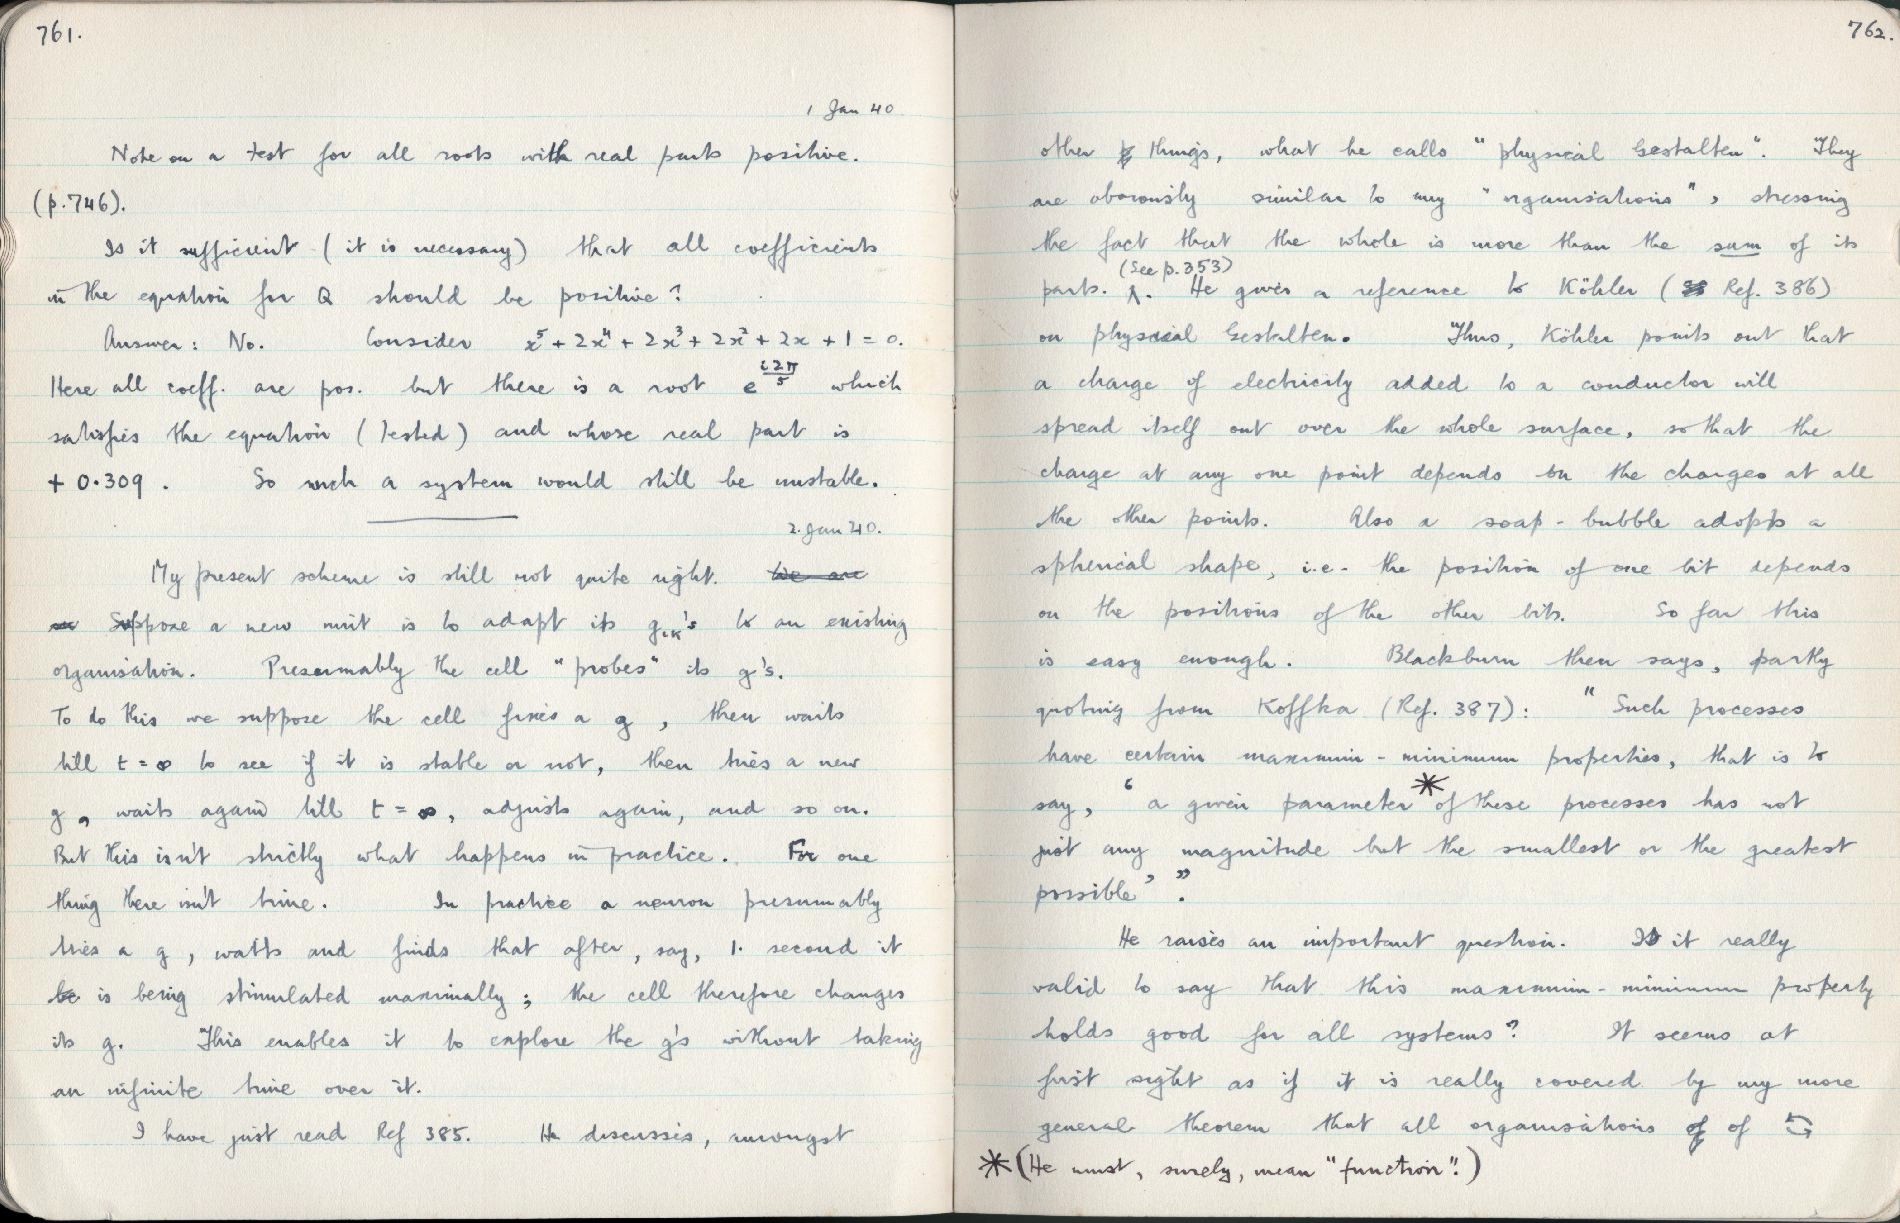 761.
1 Jan 40
Note on a test for all roots with real parts positive.
(p.746).
Is it sufficient (it is necessary) that all coefficients
in the equation for Q should be positive?
Answer: No. Consider x⁵ + 2x⁴ + 2x³ + 2x² + 2x + 1 = 0.
Here all coeff. are pos. but there is a root e^(i2π/5) which
satisfies the equation (tested) and whose real part is
+ 0.309. So such a system would still be unstable.
2. Jan 40.
My present scheme is still not quite right. We are
Suppose a new unit is to adapt its gᵢₖ's to an existing
organisation. Presumably the cell "probes" its g's.
To do this we suppose the cell fixes a g, then waits
till t = ∞ to see if it is stable or not, then tries a new
g, waits again till t = ∞, adjusts again, and so on.
But this isn't strictly what happens in practice. For one
thing there isn't time. In practice a neuron presumably
tries a g, waits and finds that after, say, 1. second it
be is being stimulated maximally; the cell therefore changes
its g. This enables it to explore the g's without taking
an infinite time over it.
I have just read Ref 385. He discusses, amongst
762.
other things, what he calls "physical Gestalten". They
are obviously similar to my "organisations", stressing
the fact that the whole is more than the sum of its
(See p.353)
parts. He gives a reference to Köhler (Ref. 386)
on physical Gestalten. Thus, Köhler points out that
a charge of electricity added to a conductor will
spread itself out over the whole surface, so that the
charge at any one point depends on the charges at all
the other points. Also a soap-bubble adopts a
spherical shape, i.e. the position of one bit depends
on the positions of the other bits. So far this
is easy enough. Blackburn then says, partly
quoting from Koffka (Ref. 387): "Such processes
have certain maximum-minimum properties, that is to
say, 'a given parameter * of these processes has not
just any magnitude but the smallest or the greatest
possible'".
He raises an important question. Is it really
valid to say that this maximum-minimum property
holds good for all systems? It seems at
first sight as if it is really covered by my more
general theorem that all organisations of of ⇆
* (He must, surely, mean "function".)